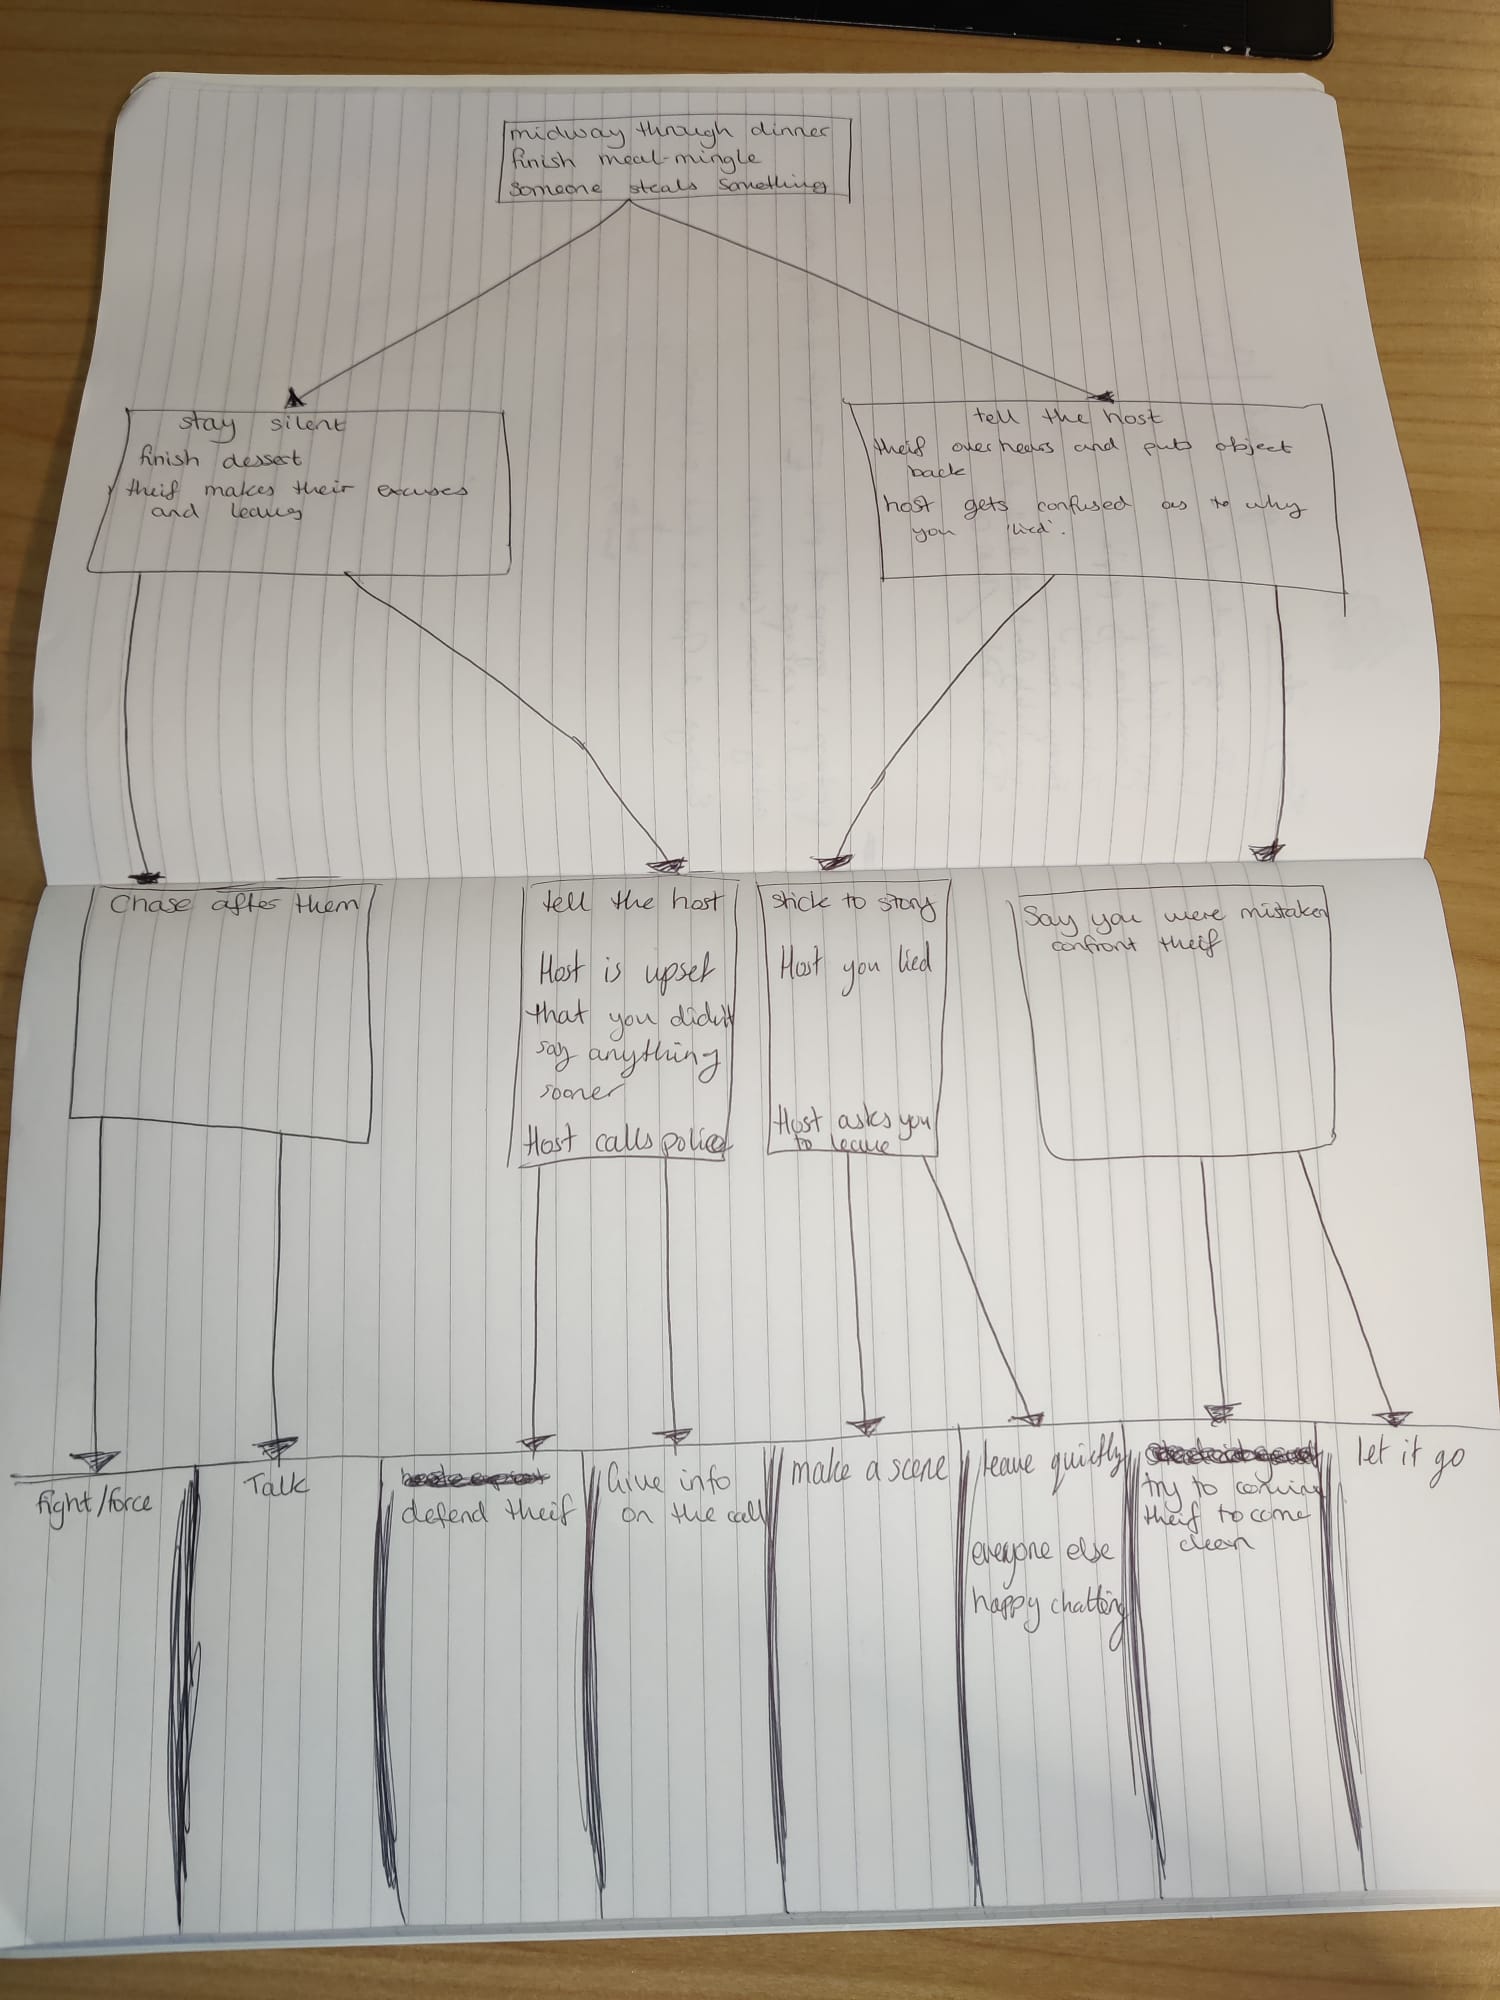 midway through dinner
finish meal-mingle
someone steals something
stay silent
finish dessert
theif makes their excuses
and leaves
tell the host
theif overhears and puts object
back
host gets confused as to why
you 'lied'.
Chase after them
tell the host
Host is upset
that you didn't
say anything
sooner
Host calls police
stick to story
Host you lied
Host asks you
to leave
Say you were mistaken
confront theif
fight/force
Talk
defend theif
Give info
on the call
make a scene
leave quietly
everyone else
happy chatting
try to
theif to come
clean
let it go